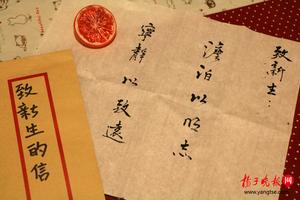 致新生：
澹泊以明志
寧靜以致遠
致新生的信
扬子晚报网
www.yangtse.com